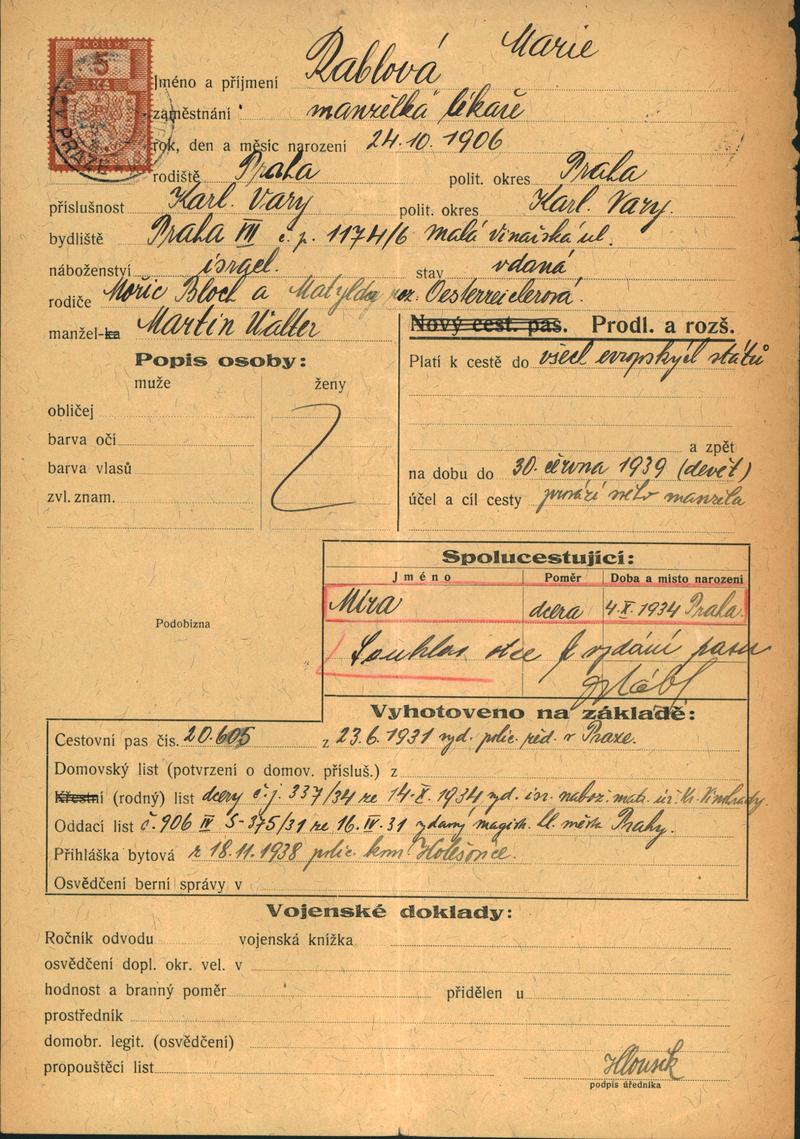 KOLEK
5
Kč
V PRAZE
Marie
Jméno a příjmení Rablová
zaměstnání manželka lékaře
rok, den a měsíc narození 24.10. 1906
rodiště Praha polit. okres Praha
příslušnost Karl. Vary polit. okres Karl. Vary.
bydliště Praha VII č. p. 1174/6 malá vinařská ul.
náboženství israel. stav vdaná
rodiče Mořic Bloch a Matylda roz. Oesterreicherová.
manžel-ka Martin Walter
Nový cest. pas. Prodl. a rozš.
Popis osoby:
Platí k cestě do všech evropských států
muže ženy
obličej
barva očí
a zpět
barva vlasů
na dobu do 30. června 1939 (devět)
zvl. znam.
účel a cíl cesty manžela
Spolucestující:
Jméno Poměr Doba a místo narození
Míra dcera 4.X. 1934 Praha.
Podobizna
Souhlas otce k vydání pasu
Vyhotoveno na základě:
Cestovní pas čís. 20.605 z 23.6. 1931 vyd. polic. řed. v Praze.
Domovský list (potvrzení o domov. přísluš.) z
Křestní (rodný) list dcery č.j. 337/34 ze 14.X. 1934 vyd. isr. nábož. mat. úř. Kr. Vinohrady.
Oddací list č. 906 IV S-375/31 ze 16.IV.31 vydaný magistr. hl. města Prahy.
Přihláška bytová z 18.11.1938 polic. kom. Holešovice.
Osvědčení berní správy v
Vojenské doklady:
Ročník odvodu vojenská knížka
osvědčení dopl. okr. vel. v
hodnost a branný poměr přidělen u
prostředník
domobr. legit. (osvědčení)
propouštěcí list
podpis úředníka